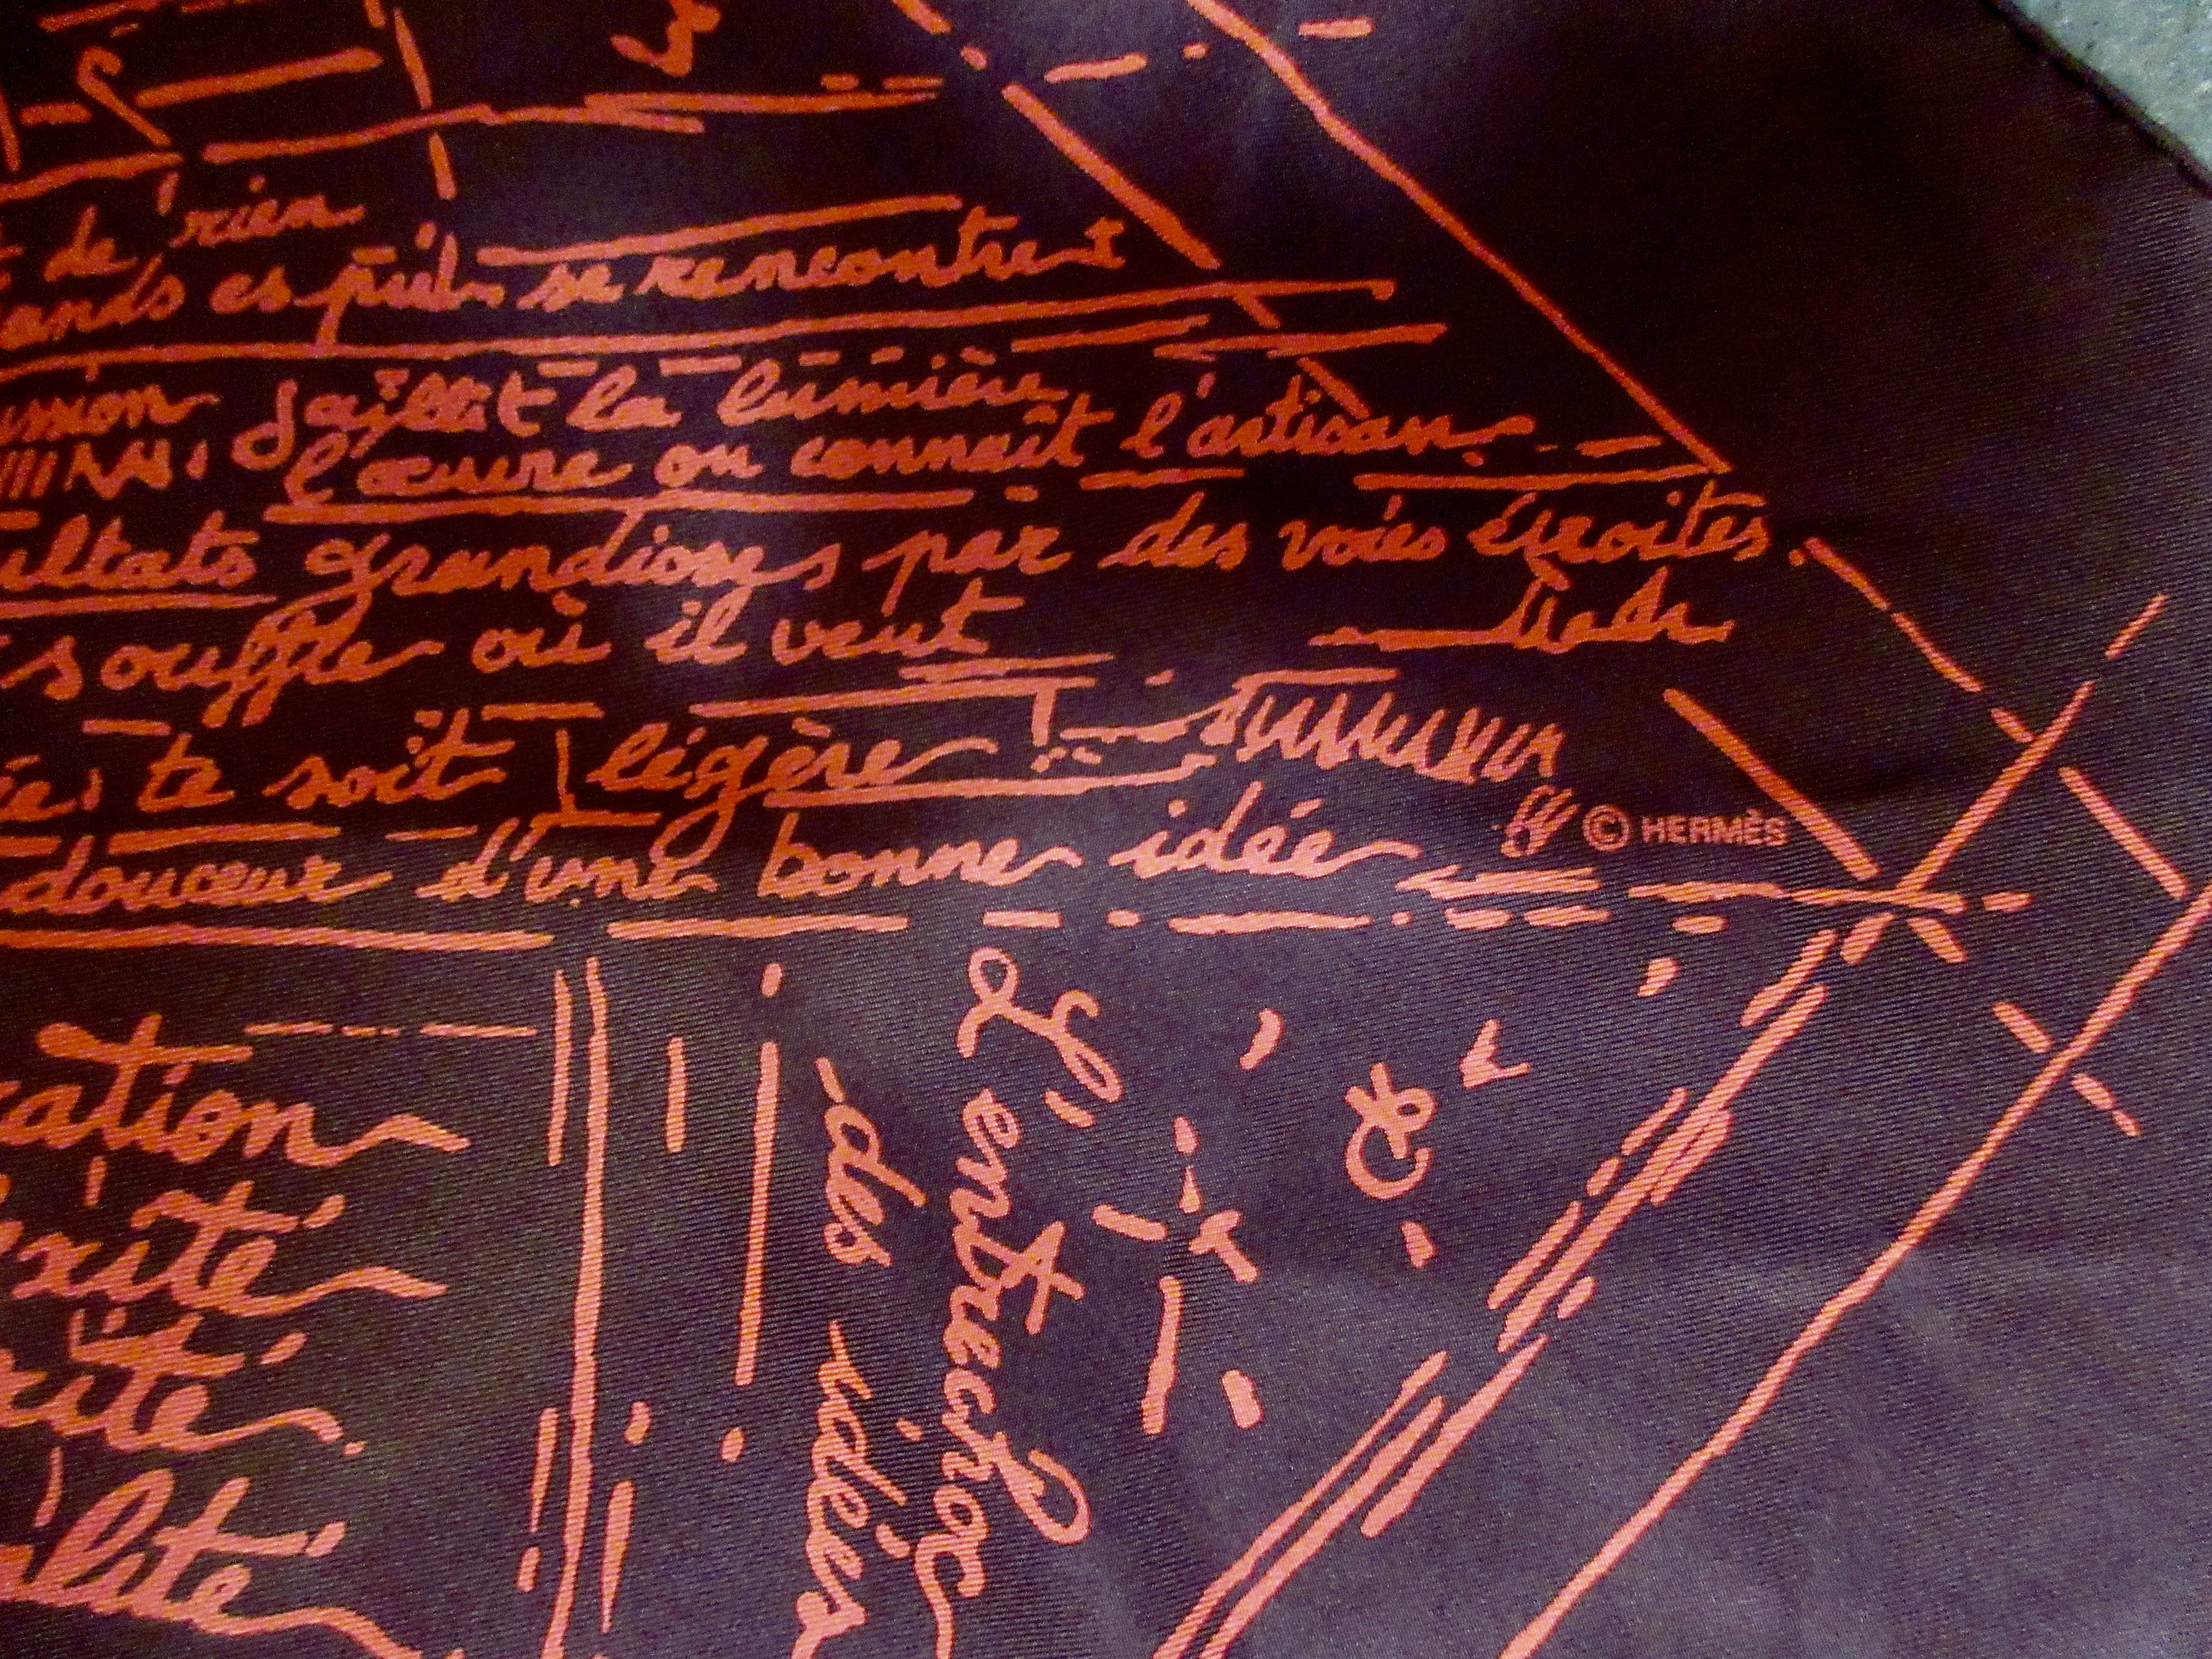 de rien
ands esprits se rencontrent
ussion jaillit la lumière
l'œuvre on connaît l'artisan
ultats grandioses par des voies étroites.
souffle où il veut
te soit légère !
douceur d'une bonne idée
© HERMÈS
cation
exité
rité
alité
L'entrechoc
des idées